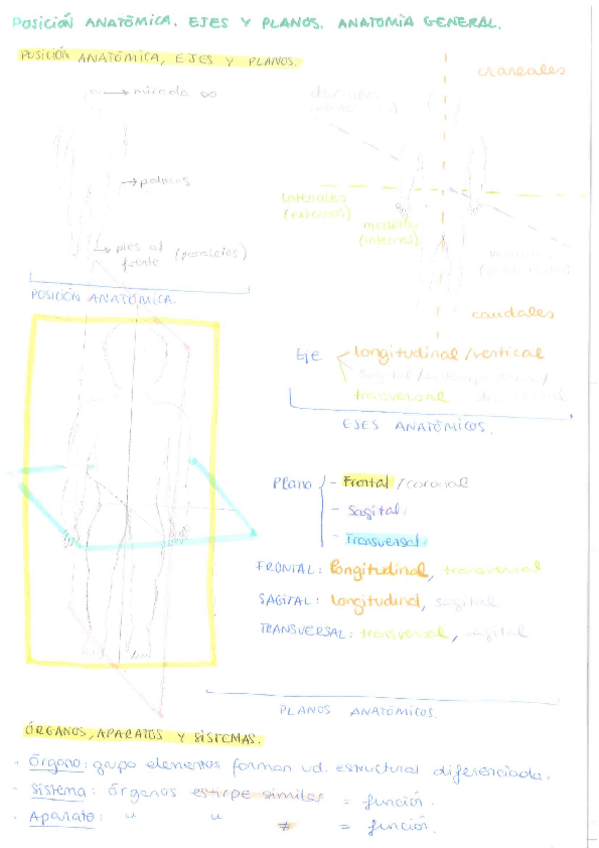 POSICIÓN ANATÓMICA. EJES Y PLANOS. ANATOMIA GENERAL.
POSICIÓN ANATÓMICA, EJES Y PLANOS.
craneales
→ mirada ∞
→ palmas
laterales
(externos)
mediales
(internos)
→ pies al frente (paralelos)
POSICIÓN ANATÓMICA.
caudales
Eje longitudinal/vertical
transversal
EJES ANATÓMICOS.
Plano - Frontal/coronal
- Sagital.
- Transversal.
FRONTAL: longitudinal, transversal
SAGITAL: longitudinal, sagital
TRANSVERSAL: transversal, sagital
PLANOS ANATÓMICOS.
ÓRGANOS, APARATOS Y SISTEMAS.
- Órgano: grupo elementos forman ud. estructural diferenciada.
- Sistema: órganos estirpe similar = función.
. Aparato: " " ≠ = función.